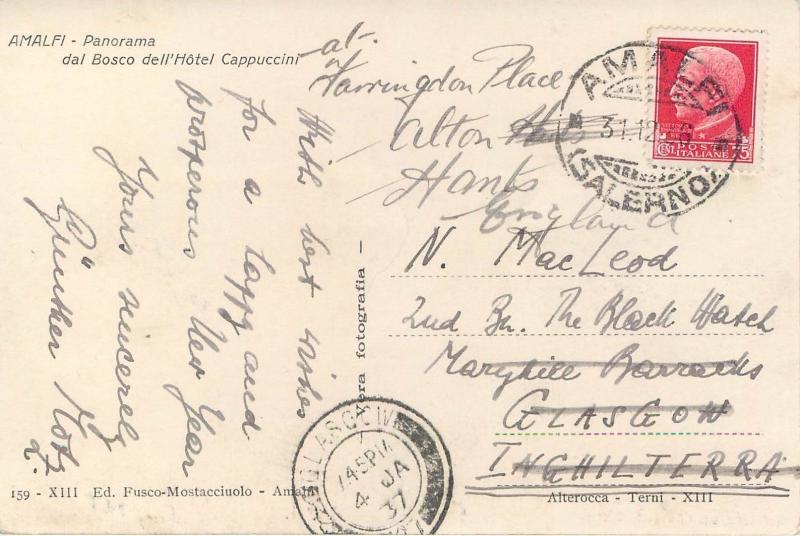 AMALFI - Panorama
dal Bosco dell'Hôtel Cappuccini
With best wishes
for a happy and
prosperous New Year
Yours sincerely
Günther
at-
Farringdon Place
Alton
Hants
England
N. MacLeod
2nd Bn. The Black Watch
Maryhill Barracks
GLASGOW
INGHILTERRA
AMALFI
31.12
(SALERNO)
POSTE
ITALIANE
era fotografia
GLASGOW
7.45PM
4 JA
37
159 - XIII Ed. Fusco-Mostacciuolo - Amalfi
Alterocca - Terni - XIII